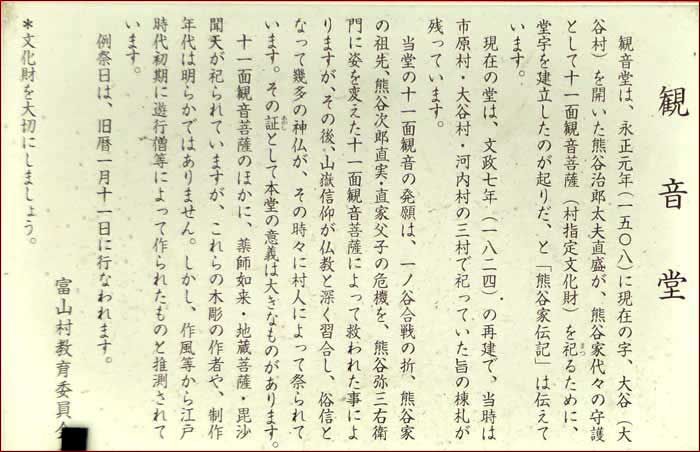 観音堂
観音堂は、永正元年(一五〇八)に現在の字、大谷(大
谷村)を開いた熊谷治郎太夫直盛が、熊谷家代々の守護
として十一面観音菩薩(村指定文化財)を祀るために、
まつ
堂字を建立したのが起りだ、と「熊谷家伝記」は伝えて
います。
現在の堂は、文政七年(一八二四)の再建で、当時は
市原村・大谷村・河内村の三村で祀っていた旨の棟札が
残っています。
当堂の十一面観音の発願は、一ノ谷合戦の折、熊谷家
の祖先、熊谷次郎直実・直家父子の危機を、熊谷弥三右衛
門に姿を変えた十一面観音菩薩によって救われた事によ
りますが、その後、山嶽信仰が仏教と深く習合し、俗信と
なって幾多の神仏が、その時々に村人によって祭られて
います。その証として本堂の意義は大きなものがあります。
あかし
十一面観音菩薩のほかに、薬師如来・地蔵菩薩・毘沙
聞天が祀られていますが、これらの木彫の作者や、制作
年代は明らかではありません。しかし、作風等から江戸
時代初期に遊行僧等によって作られたものと推測されて
います。
例祭日は、旧暦一月十一日に行なわれます。
富山村教育委員会
*文化財を大切にしましょう。